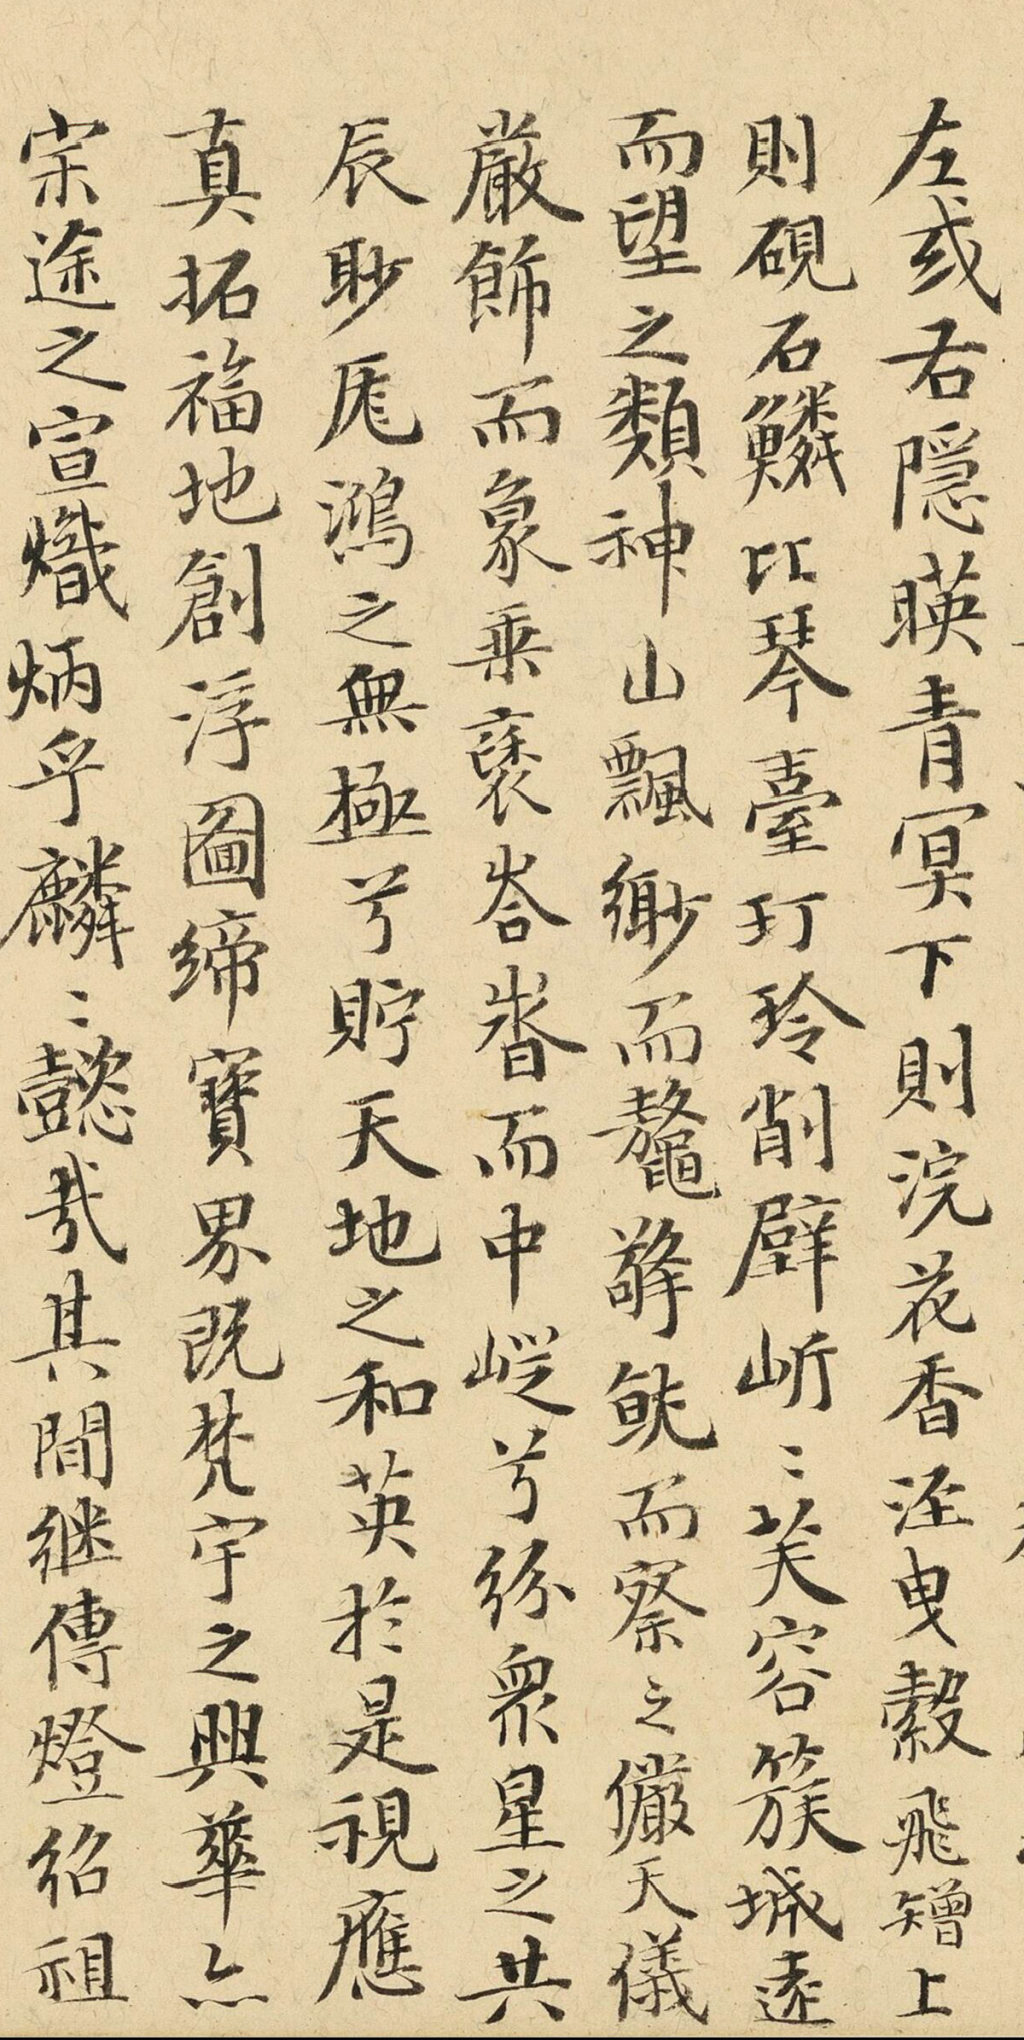 左或右隱暎青冥下則浣花香溼曳縠飛矰上
則硯石鱗比琴臺玎玲削壁岓〻芙容簇城遠
而望之類神山飄緲而鼇擎䏻而察之儼天儀
嚴飾而象乘褒峇㟫而中嵸兮紛衆星之共
辰眇厖鴻之無極兮貯天地之和英於是視應
真拓福地創浮圖締寶界既梵宇之興華亦
宗途之宣熾炳乎麟〻懿哉其間継傳燈紹祖